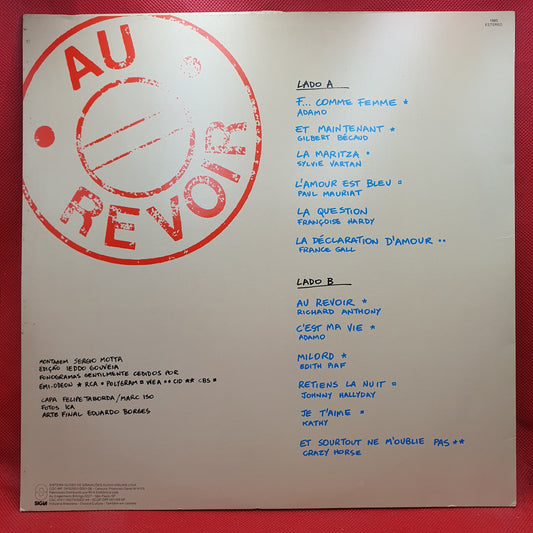 AU
REVOIR
1985
ESTEREO
LADO A
F... COMME FEMME *
ADAMO
ET MAINTENANT *
GILBERT BÉCAUD
LA MARITZA *
SYLVIE VARTAN
L'AMOUR EST BLEU ¤
PAUL MAURIAT
LA QUESTION
FRANÇOISE HARDY
LA DÉCLARATION D'AMOUR ••
FRANCE GALL
LADO B
AU REVOIR *
RICHARD ANTHONY
C'EST MA VIE *
ADAMO
MILORD *
EDITH PIAF
RETIENS LA NUIT ¤
JOHNNY HALLYDAY
JE T'AIME ¤
KATHY
ET SOURTOUT NE M'OUBLIE PAS **
CRAZY HORSE
MONTAGEM SERGIO MOTTA
EDIÇÃO IEDDO GOUVEIA
FONOGRAMAS GENTILMENTE CEDIDOS POR
EMI-ODEON * RCA • POLYGRAM ¤ WEA •• CID ** CBS
CAPA FELIPE TABORDA/MARC ISO
FOTOS IKA
ARTE FINAL EDUARDO BORGES
SIGLA